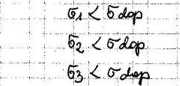 σ1 < σ dop
σ2 < σ dop
σ3 < σ dop